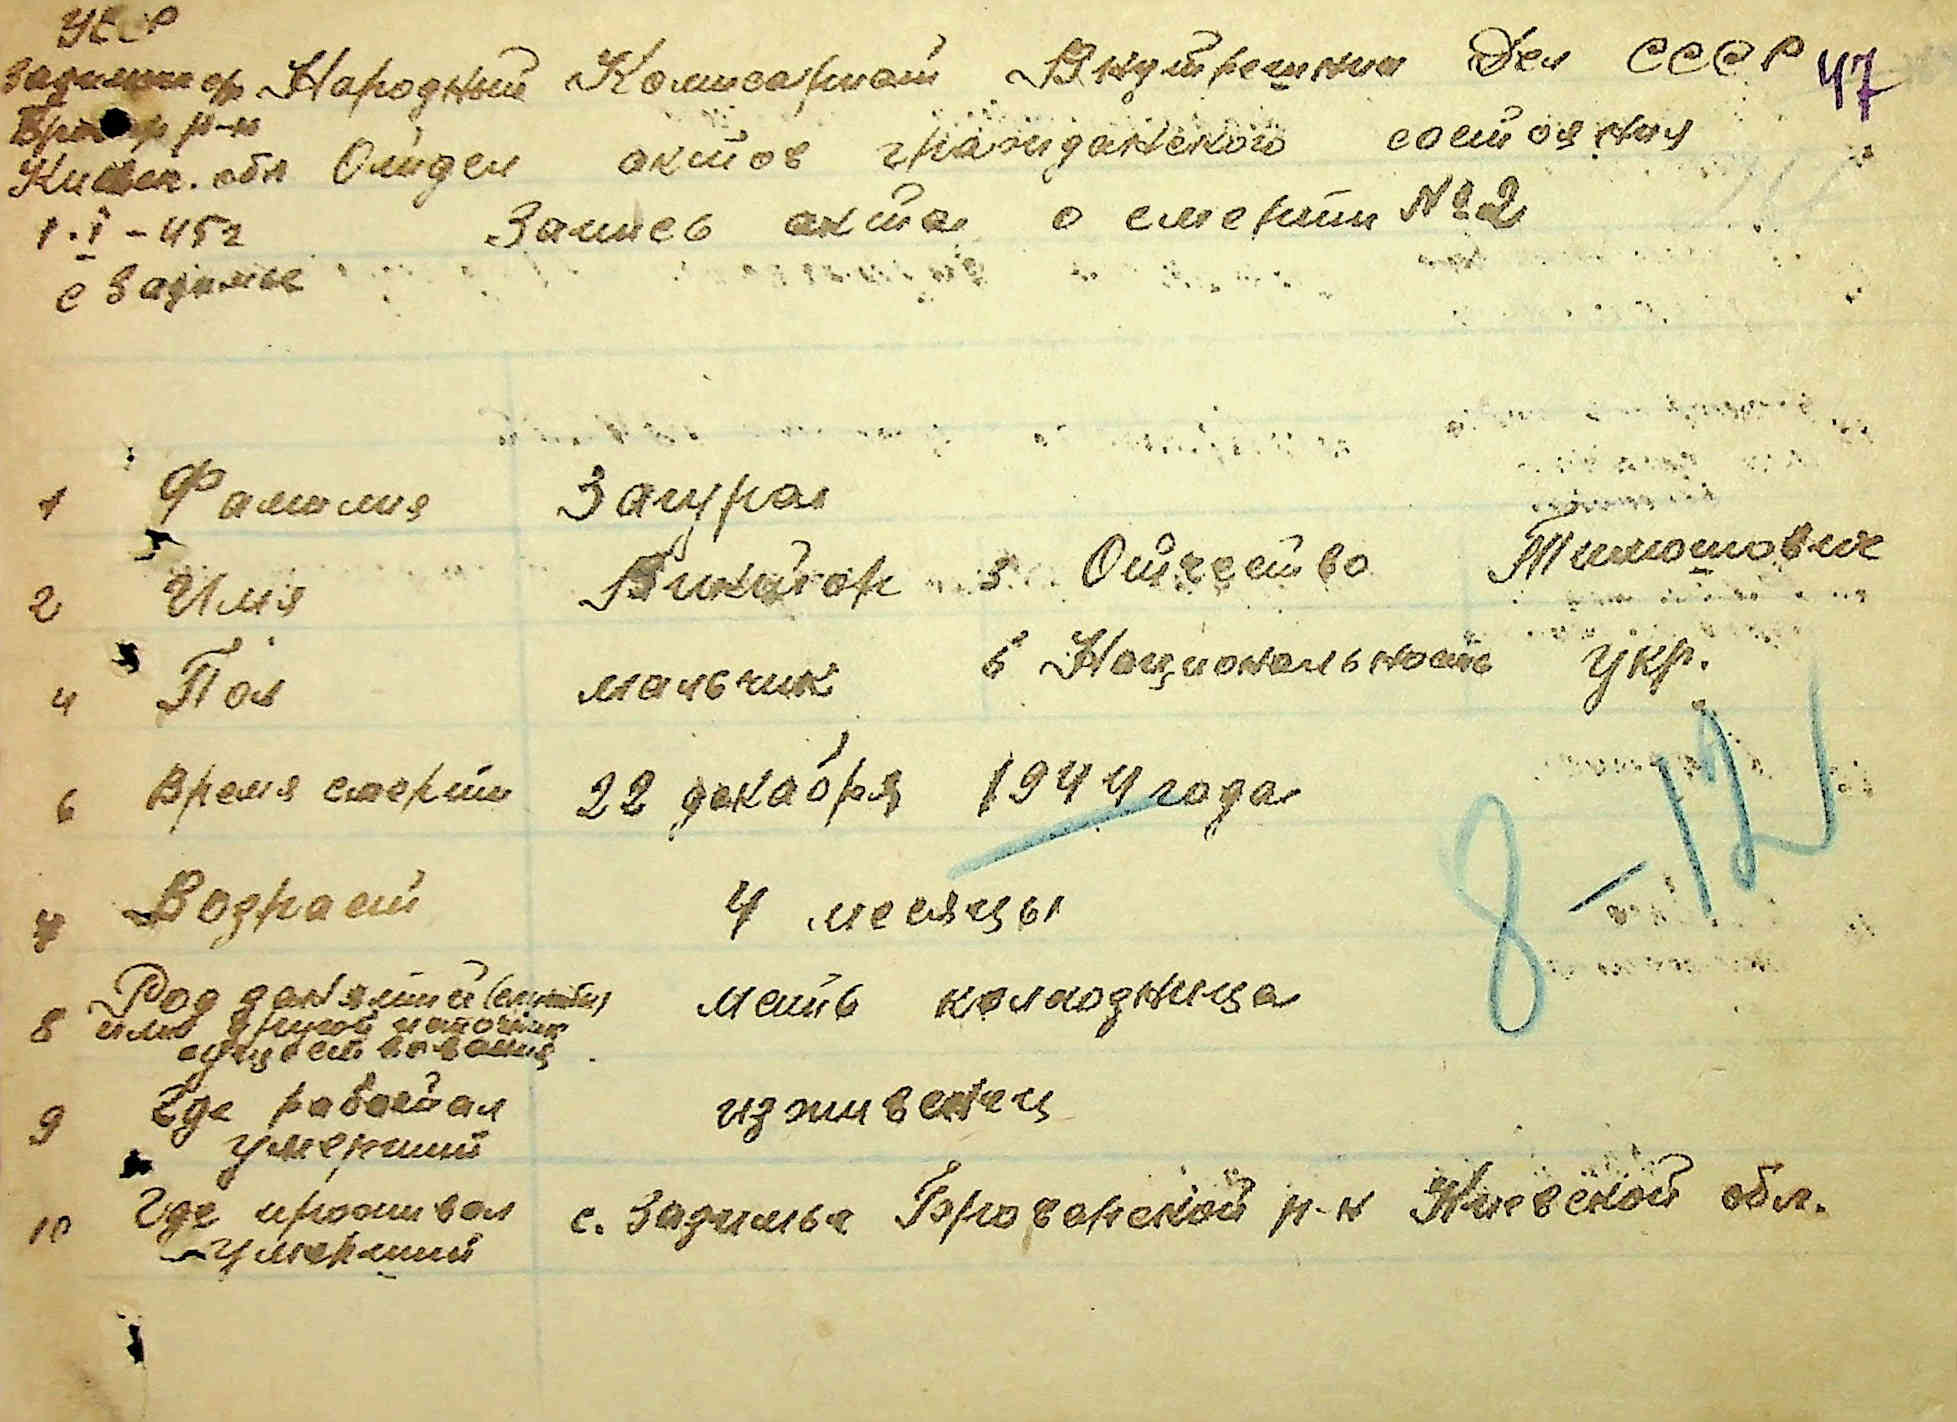 УССР
Народный Комисариат Внутрешних Дел СССР 47
Бровар р-н
Киевск. обл Отдел актов гражданского состояния
1.I-45г Запись акта о смерти № 2
с Задимье
1 Фамилия Зацура
2 Имя Виктор 3 Отчество Тимошович
4 Пол мальчик 5 Национальность укр.
6 Время смерти 22 декабря 1944 года
8-12
7 Водраст 4 месяцы
8 Род занятий (службы) мать колходница
или другой источник
существования
9 Где работал иживенец
умерший
10 Где проживал с. Задимье Броварской р-н Киевской обл.
умерший